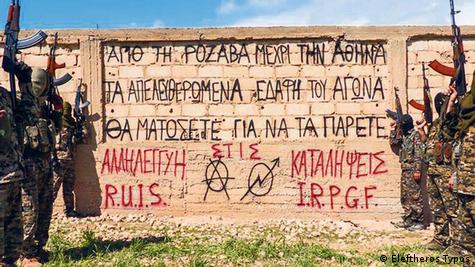 ΑΠΟ ΤΗ ΡΟΖΑΒΑ ΜΕΧΡΙ ΤΗΝ ΑΘΗΝΑ
ΤΑ ΑΠΕΛΕΥΘΕΡΩΜΕΝΑ ΕΔΑΦΗ ΤΟΥ ΑΓΩΝΑ
ΘΑ ΜΑΤΩΣΕΤΕ ΓΙΑ ΝΑ ΤΑ ΠΑΡΕΤΕ
ΑΛΛΗΛΕΓΓΥΗ ΣΤΙΣ ΚΑΤΑΛΗΨΕΙΣ
R.U.I.S. I.R.P.G.F.
© Eleftheros Typos